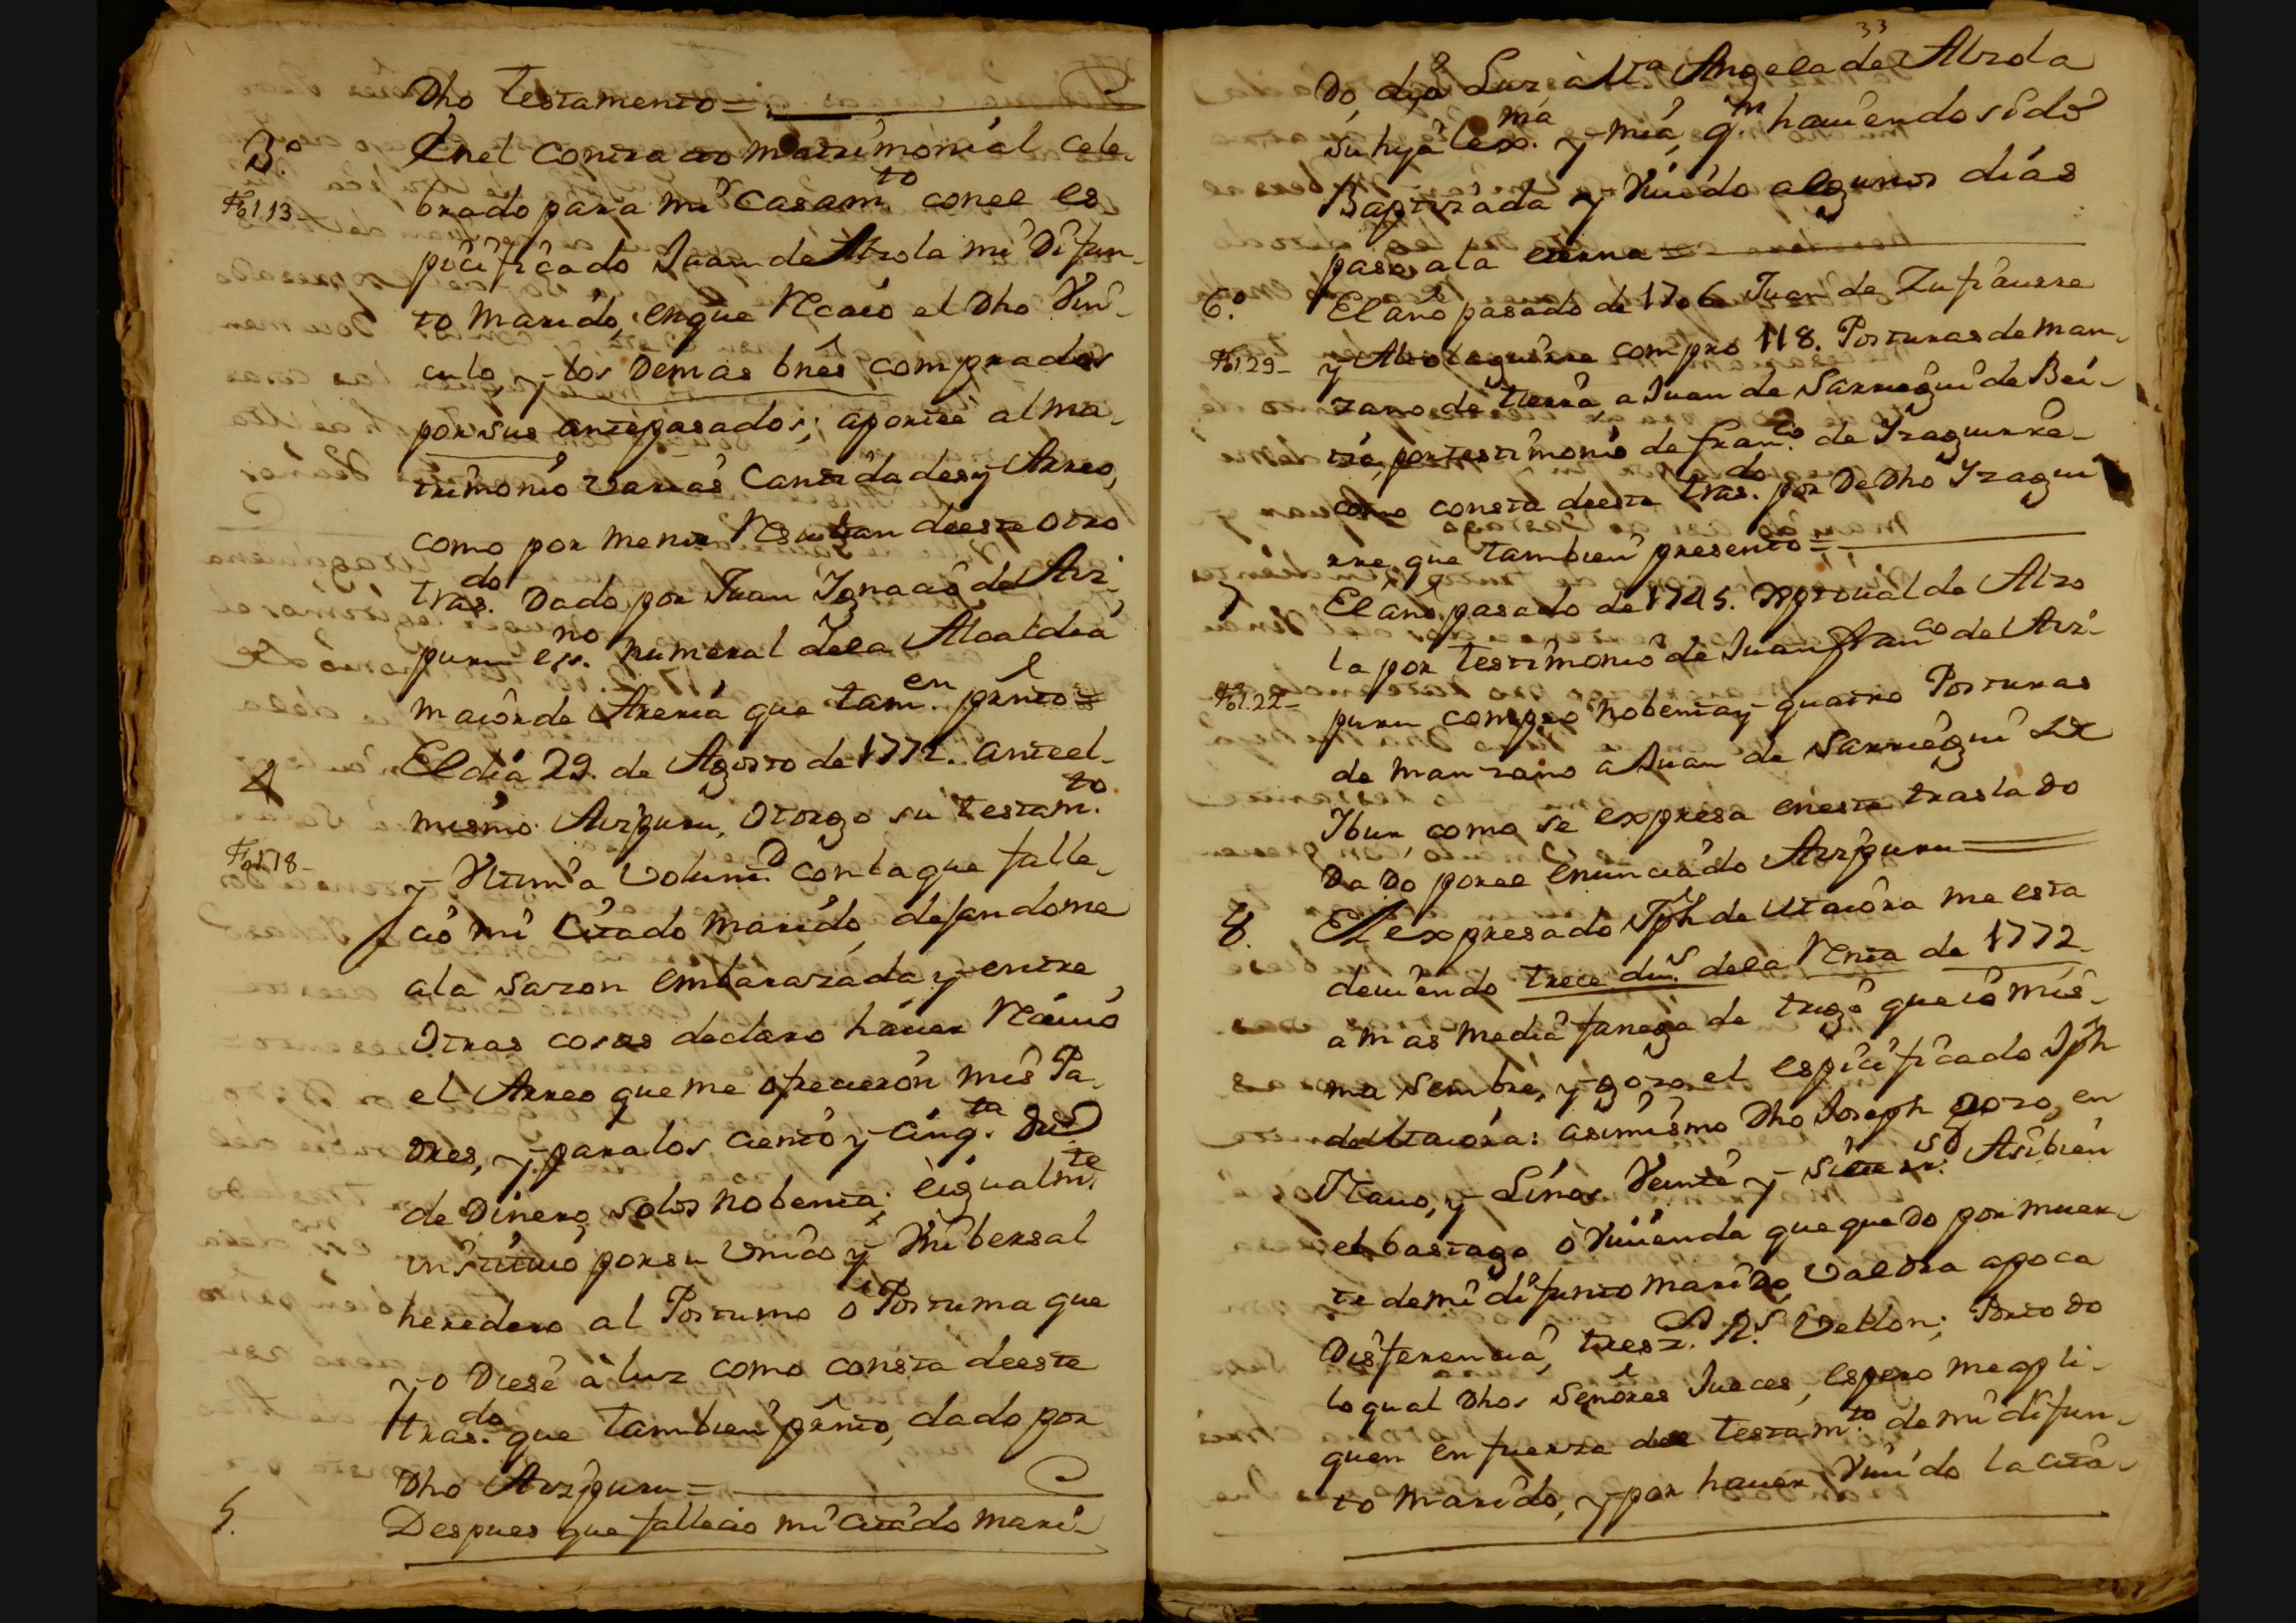 Dho testamento =
3.º En el contracto matrimonial cele-
Fol. 13- brado para mi casam.to con el es
picificado Juan de Alzola mi difun-
to marido, en que recaió el Dho Vin-
culo, y los demas bnes comprados
por sus antepasados; aporteé al ma-
trimonio varias cantidades y Arreo,
como por menor resultan de este otro
tras.do dado por Juan Ignacio de Ariz-
puru ess.no numeral de la Alcaldia
maior de Areria que tam.en prnto =
4 El dia 29. de Agosto de 1772. ante el
mismo Arizpuru, otorgo su testam.to
Fol. 18- y Vltima Volunt.d con la que falle-
ció mi citado marido, dejandome
a la sazon embarazada y entre
otras cosas declaro háuer reciuió
el Arreo que me ofrecieron mis Pa-
dres, y para los ciento y cinq.ta dus
de dinero, solos nobenta; è igualm.te
instituió por su Vnico y Vniversal
heredero al Postumo ó Postuma que
yo diese à luz como consta de este
tras.do que tambien prnto, dado por
Dho Arizpuru =
5. Despues que fallecio mi citado mari-
33
do, di a Luz à M.a Angela de Alzola
su hija lex.ma y mia, q.n hauiendo sido
Baptizada y Viuido algunos dias
paso a la eterna =
6.º El año pasado de 1706 Juan de Zufiaurre
Fol. 29- y Alzolaguirre compro 118. Posturas de man-
zano de tierra, a Juan de Sarriegui de Bei-
tia, por testimonio de Fran.co de Yzaguirre
como consta de este tras.do por de Dho Yzagui
rre, que tambien presento =
7 El año pasado de 1745. Xptoual de Alzo
la por testimonio de Juan Fran.co de Ariz-
Fol. 22- puru compro nobenta y quatro Posturas
de manzano a Juan de Sarriegui de
Ybur, como se expresa en este traslado
dado por el enunciado Arizpuru
8. El expresado Jph de Vtaiora me esta
deuiendo trece du.s de la renta de 1772
a mas media fanega de trigo que ió mis-
ma sembre, y gozo el espicificado Jph
de Vtaiora: asimismo Dho Joseph gozo, en
Nauo, y Linos Veinte y siete Asibien
el bastago ò Viuienda que quedo por muer-
te de mi difunto marido, valdra a poca
diferencia, tres R.s Vellon; Por todo
lo qual Dhos señores Jueces, espero me apli-
quen en fuerza del testam.to de mi difun-
to marido, y por hauer Viuido la cita-